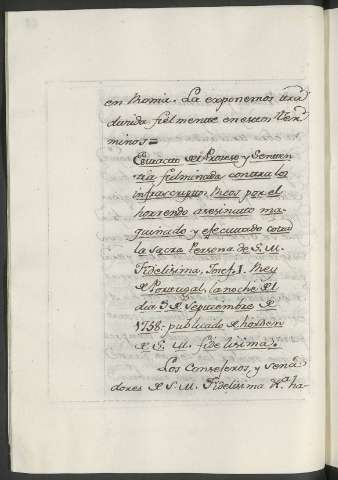 en Roma. La exponemos tra
ducida fielmente en estos Ter
minos=
Extracto del Proceso y Senten
cia fulminada contra los
infrascriptos Rheos por el
horrendo asesinato ma
quinado y executado contra
la Sacra Persona de S. M.
Fidelisima, Josef. I. Rey
de Portugal, la noche del
dia 3 de Septiembre de
1758. publicado de horden
de S. M. fidelisima.
Los Consejeros, y Sena
dores de S. M. Fidelisima &.ª ha-